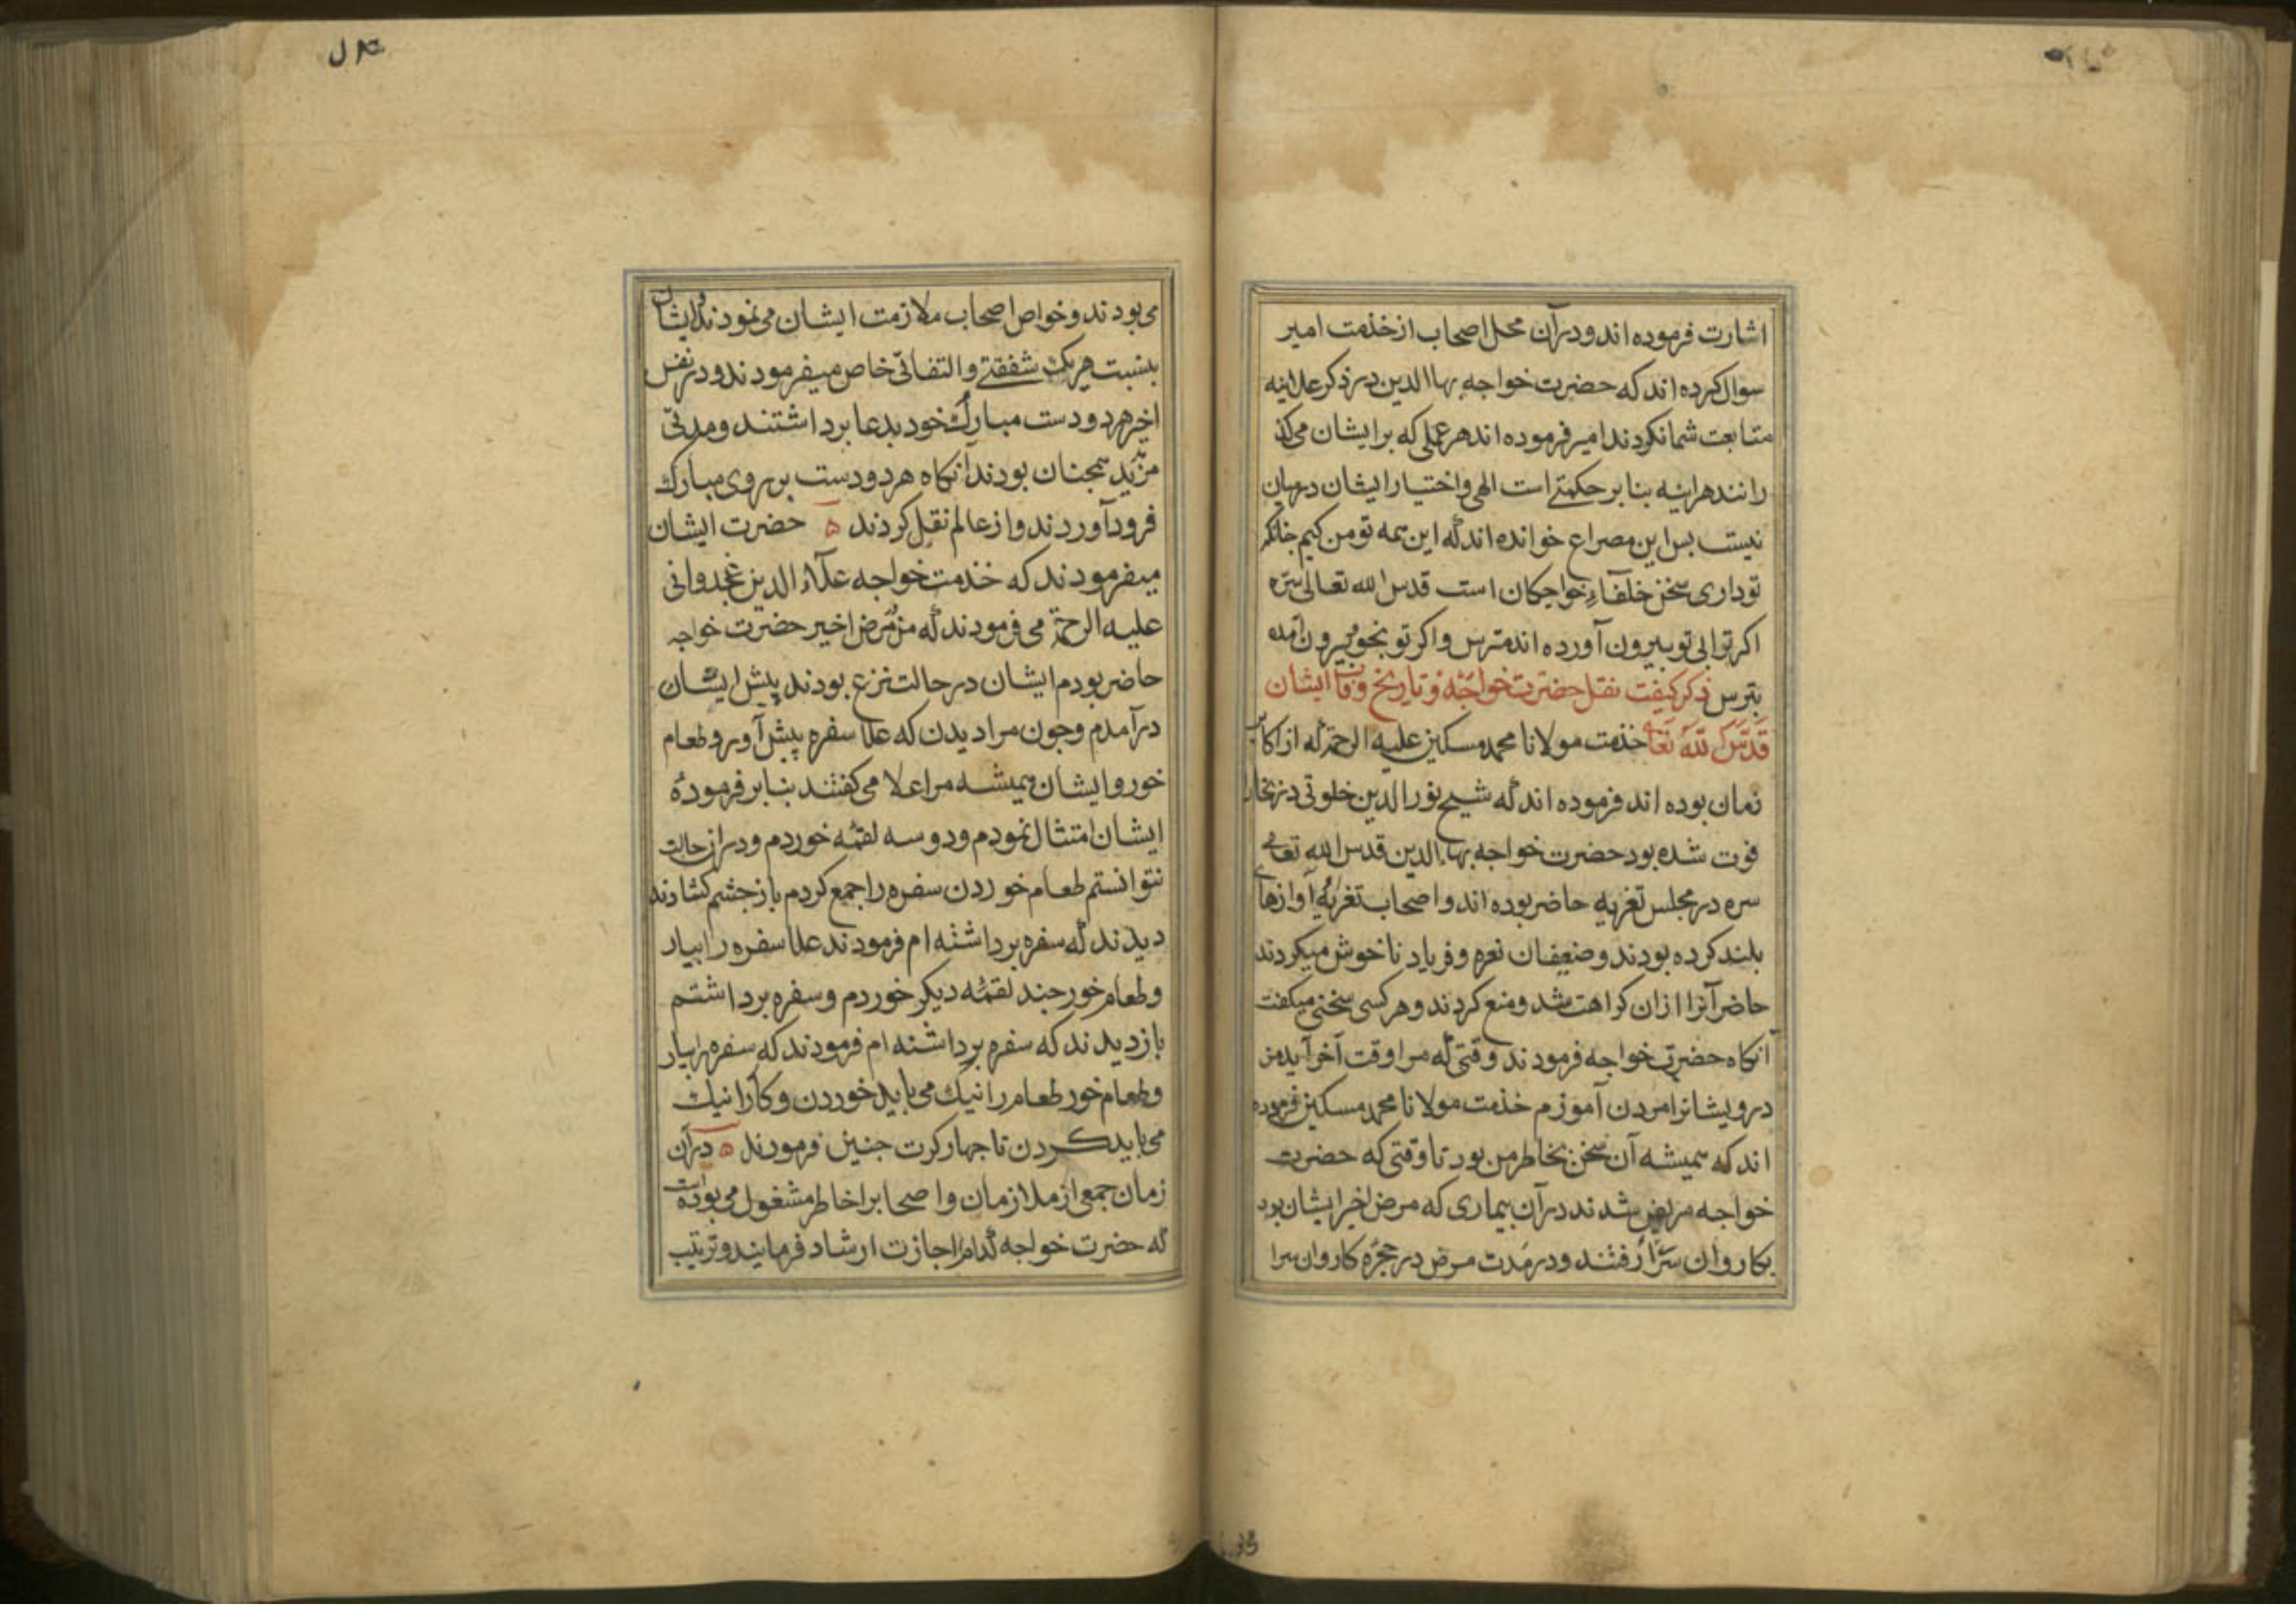 اشارت فرموده اند و در آن محل اصحاب از خذمت امیر
سوال کرده اند که حضرت خواجه بهاالدین در ذکر علانیه
متابعت شما نکردند امیر فرموده اند هر عملی که بر ایشان می کذ
رانند هر اینه بنا بر حکمتی است الهی و اختیار ایشان در میان
نیست بس این مصراع خوانده اند که این همه تو من کیم جنانکم
تو داری سخن خلفاء خواجکان است قدس الله تعالی سره
اکر ترا بی تو بیرون آورده اند مترس و اکر تو بخود بیرون آمده
بترس ذکر کیفیت نقل حضرت خواجه و تاریخ وفات ایشان
قدس الله تعالی خذمت مولانا محمد مسکین علیه الرحمة که از اکابر
زمان بوده اند فرموده اند که شیخ نورالدین خلوتی در بخارا
فوت شده بود حضرت خواجه بهاءالدین قدس الله تعالی
سره در مجلس تعزیه حاضر بوده اند و اصحاب تعزیه آوازهای
بلند کرده بودند و ضعیفان نعره و فریاد ناخوش میکردند
حاضر آنرا ازان کراهت شد و منع کردند و هر کسی سخنی میکفت
آنکاه حضرت خواجه فرمودند وقتی که مرا وقت آخر آید من
درویشانرا مردن آموزم خذمت مولانا محمد مسکین فرموده
اند که همیشه آن سخن بخاطر من بود تا وقتی که حضرت
خواجه مریض شدند در آن بیماری که مرض اخیر ایشان بود
بکاروان سرا رفتند و در مدت مرض در حجره کاروان سرا
می بودند و خواص اصحاب ملازمت ایشان می نمودند و ایشان
بنسبت هر یک شفقتی و التفاتی خاص میفرمودند و در نفس
اخیر هر دو دست مبارک خود بدعا برداشتند و مدتی
مزید همجنان بودند آنکاه هر دو دست بر روی مبارک
فرود آوردند و از عالم نقل کردند ه حضرت ایشان
میفرمودند که خذمت خواجه علاء الدین غجدوانی
علیه الرحمة می فرمودند که من در مرض اخیر حضرت خواجه
حاضر بودم ایشان در حالت نزع بودند پیش ایشان
در آمدم و جون مرا دیدن که علا سفره پیش آور و طعام
خور و ایشان همیشه مرا علا می کفتند بنا بر فرموده
ایشان امتثال نمودم و دو سه لقمه خوردم و در ان حالت
نتوانستم طعام خوردن سفره را جمع کردم باز جشم کشادند
دیدند که سفره برداشته ام فرمودند علا سفره را بیار
و طعام خور جند لقمه دیکر خوردم و سفره برداشتم
باز دیدند که سفره برداشته ام فرمودند که سفره را بیار
و طعام خور طعام را نیک می باید خوردن و کار را نیک
می باید کردن تا جهار کرت جنین فرمودند ه در آن
زمان جمعی از ملازمان و اصحاب را خاطر مشغول می بوده است
که حضرت خواجه کدام را اجازت ارشاد فرمایند و ترتیب